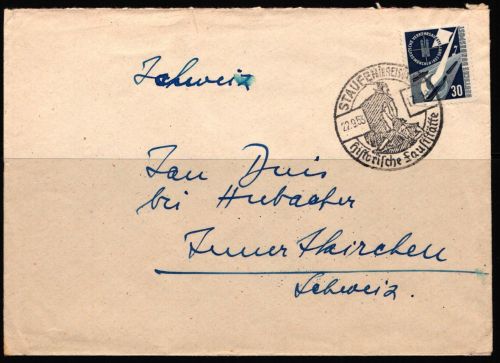 Schweiz
30
STAUFEN (BREISGAU)
22.9.53
historische Fauststätte
Jan Duis
bei Hubacher
Innertkirchen
Schweiz